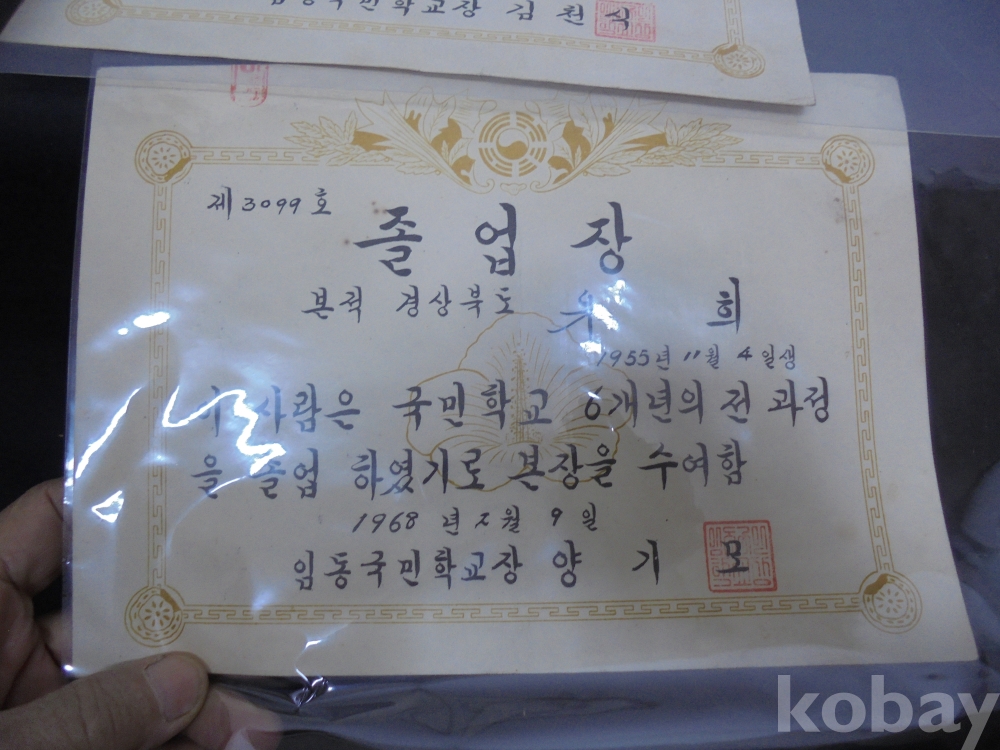 임동국민학교장 김천식
제 3099 호
졸업장
본적 경상북도
희
1955년 11월 4일생
이 사람은 국민학교 6개년의 전 과정
을 졸업 하였기로 본장을 수여함
1968 년 2월 9일
임동국민학교장 양기모
kobay